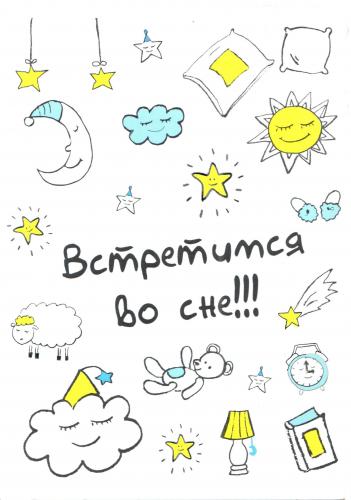 Встретимся
во сне!!!